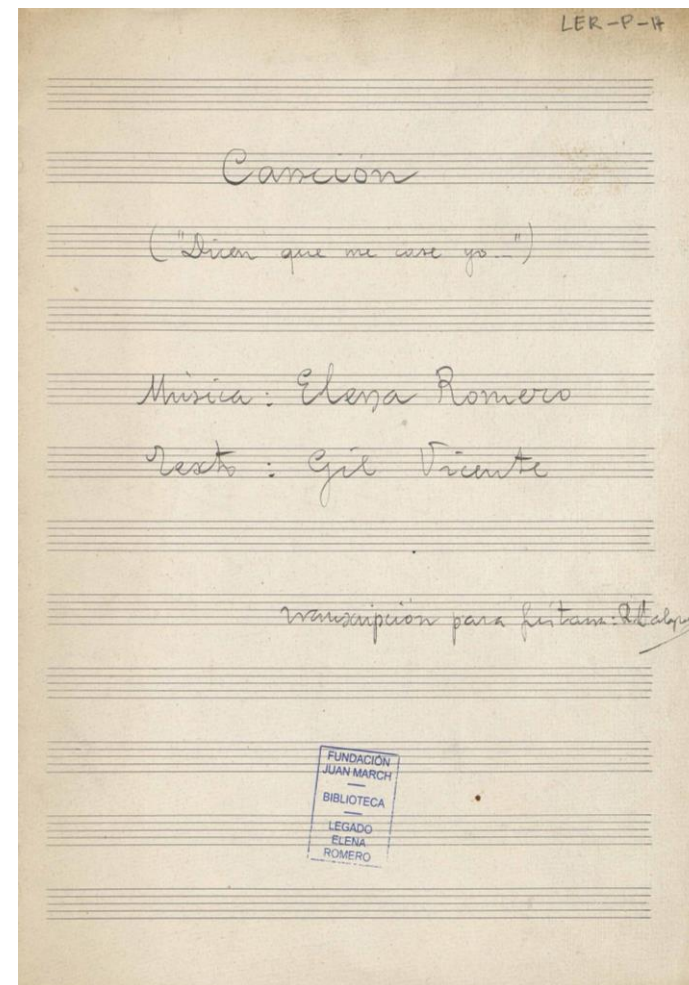 LER-P-14
Canción
("Dicen que me case yo...")
Música: Elena Romero
Texto: Gil Vicente
transcripción para guitarra:
FUNDACIÓN
JUAN MARCH
BIBLIOTECA
LEGADO
ELENA
ROMERO